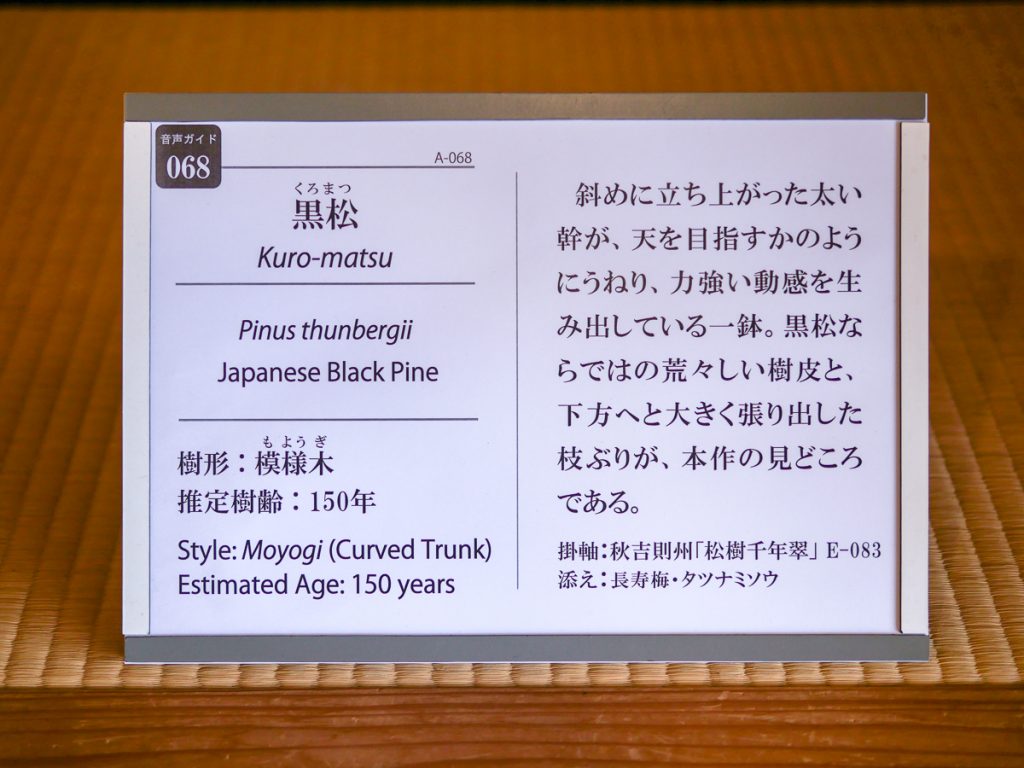 音声ガイド
068
A-068
くろまつ
黒松
Kuro-matsu
Pinus thunbergii
Japanese Black Pine
もようぎ
樹形：模様木
推定樹齢：150年
Style: Moyogi (Curved Trunk)
Estimated Age: 150 years
斜めに立ち上がった太い
幹が、天を目指すかのよう
にうねり、力強い動感を生
み出している一鉢。黒松な
らではの荒々しい樹皮と、
下方へと大きく張り出した
枝ぶりが、本作の見どころ
である。
掛軸：秋吉則州「松樹千年翠」 E-083
添え：長寿梅・タツナミソウ